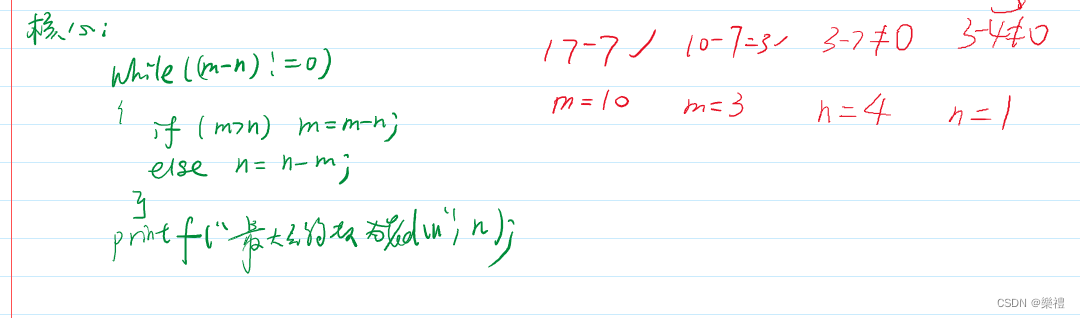 核心:
while((m-n)!=0)
{
if (m>n) m=m-n;
else n= n-m;
}
printf("最大公约数为%d\n", n);
17-7 ✓ 10-7=3✓ 3-7≠0 3-4≠0
m=10 m=3 n=4 n=1
CSDN @樂禮